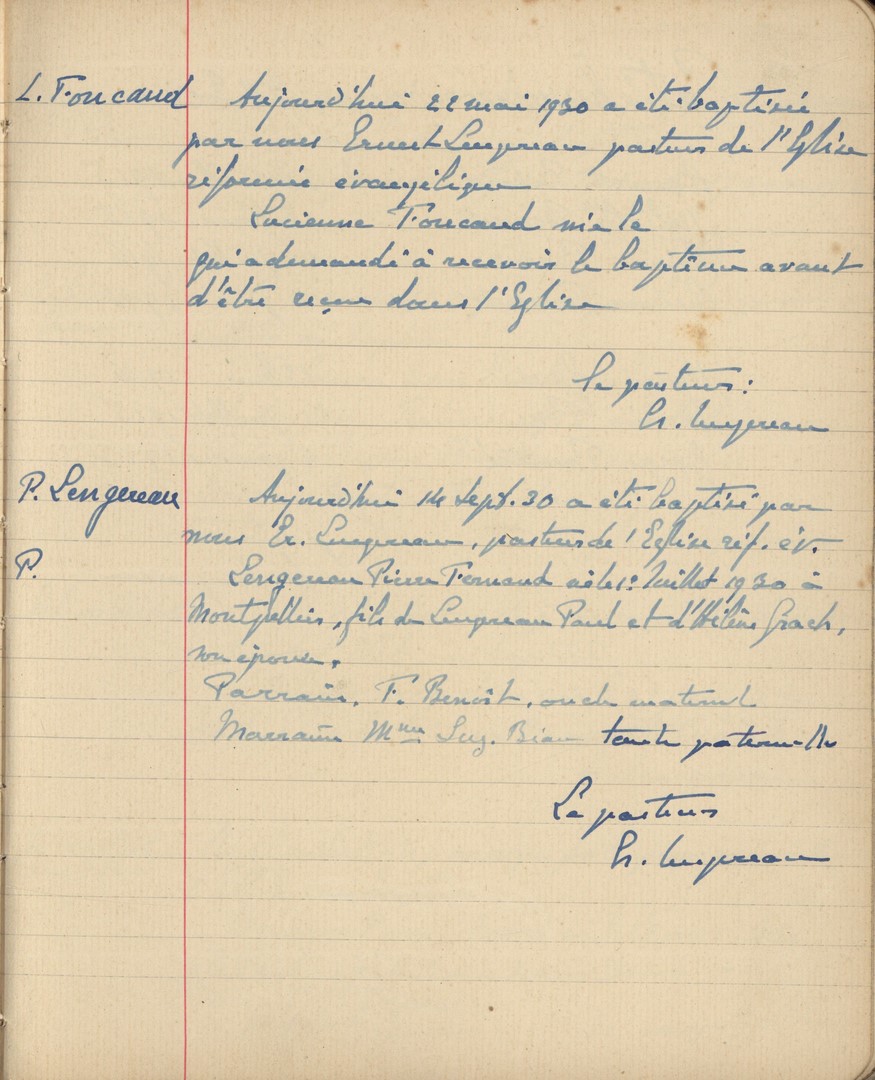 L. Foucaud
Aujourd'hui 22 mai 1930 a été baptisée
par nous Ernest Lengereau pasteur de l'Eglise
réformée évangélique
Lucienne Foucaud née le
qui a demandé à recevoir le baptême avant
d'être reçue dans l'Eglise
le pasteur:
Er. Lengereau
P. Lengereau
Aujourd'hui 14 sept. 30 a été baptisé par
nous Er. Lengereau, pasteur de l'Eglise réf. év.
P.
Lengereau Pierre Fernand né le Juillet 1930 à
Montpellier, fils de Lengereau Paul et d'Hélène
son épouse.
Parrain, F. Benoît, oncle maternel
Marraine Mme tante paternelle
Le pasteur
Er. Lengereau